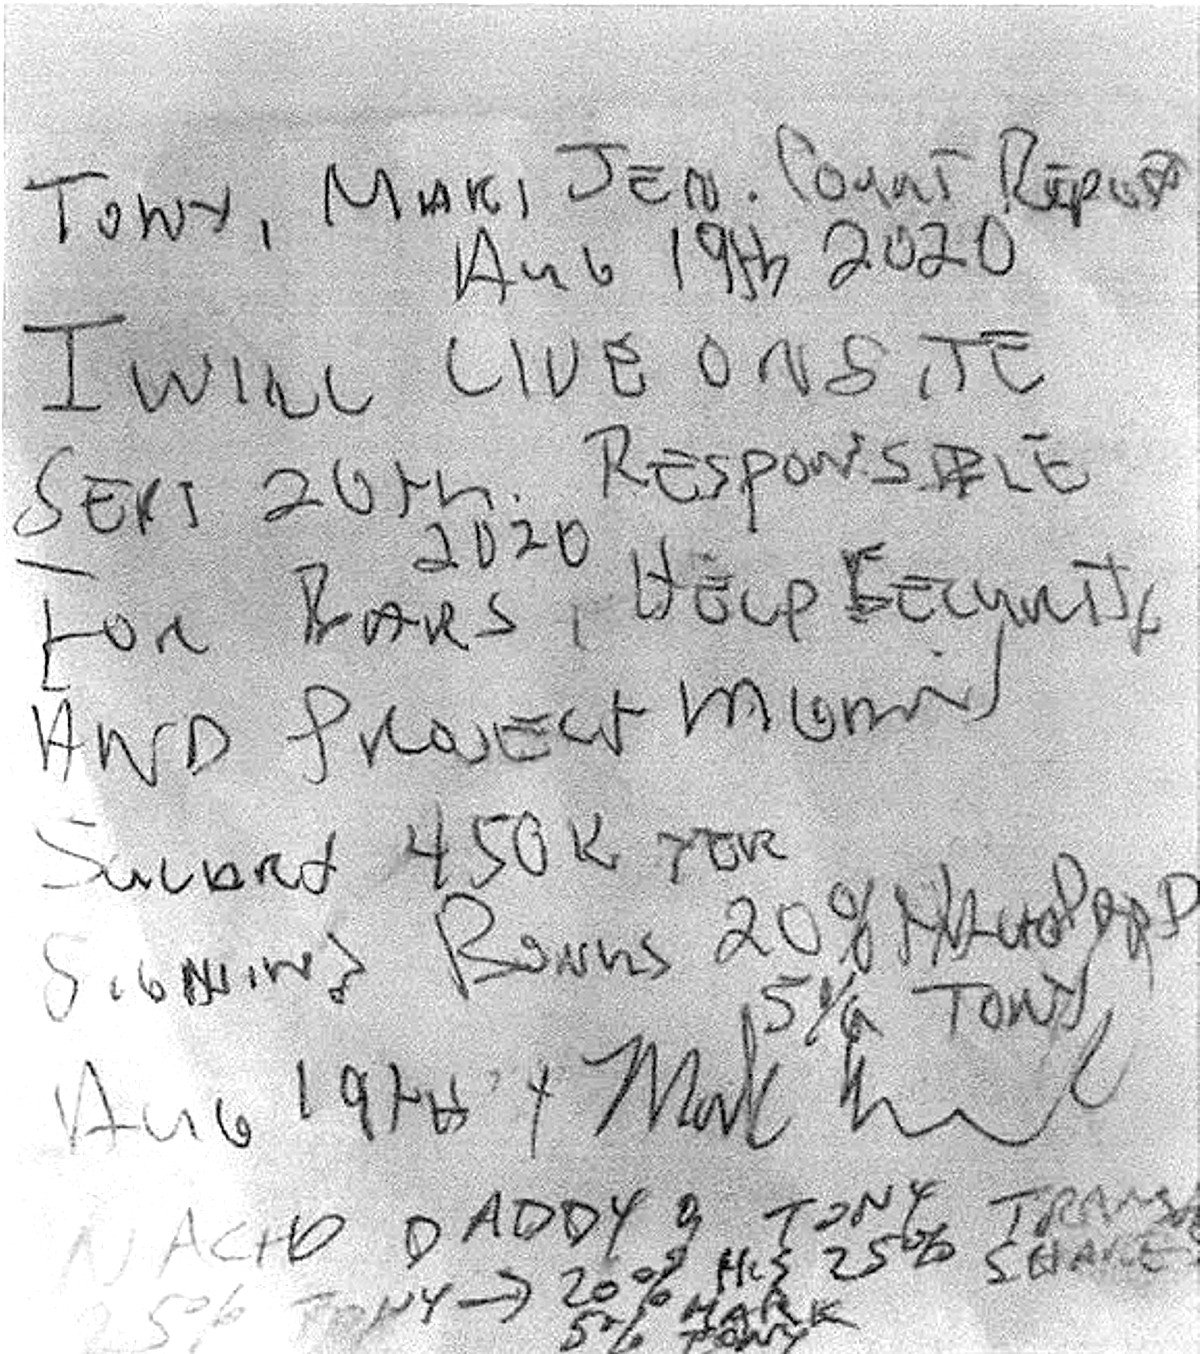 TONY, MARK, JEN. COURT REPORT
AUG 19th 2020
I WILL LIVE ONSITE
SEPT 20th. RESPONSIBLE
2020
FOR BARS, HELP SECURITY
AND PROJECT MGMN
SALARY 450K YEAR
SIGNING BONUS 20% NACHO DADD
5% TONY
AUG 19th Mark
NACHO DADDY & TONY TRANS
20% HIS 25% SHARES
25% TONY → 5% MARK
TONY